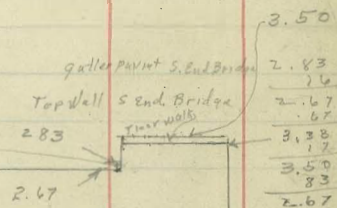 3.50
gutter S. End Bridge 2.83
16
Top Wall S End Bridge 2.67
.67
Floor Walk
283 3.38
17
3.50
83
2.67 2.67